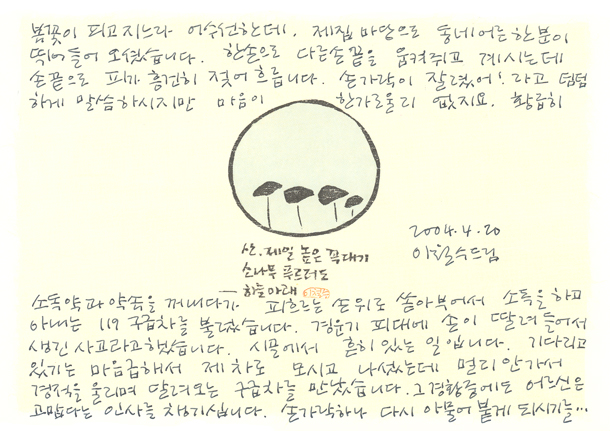 봄꽃이 피고지느라 어수선한데, 제집 마당으로 동네어른 한분이
뛰어들어 오셨습니다. 한손으로 다른손 끝을 움켜쥐고 계시는데
손끝으로 피가 흥건히 젖어 흐릅니다. 손가락이 잘렸어! 라고 덤덤
하게 말씀하시지만 마음이 한가로울리 없지요. 황급히
산. 제일 높은 꼭대기
소나무 푸르러도
— 하늘 아래
2004. 4. 20
이철수드림
소독약과 약솜을 꺼내다가 피흐르는 손위로 쏟아부어서 소독을 하고
아내는 119 구급차를 불렀습니다. 경운기 피대에 손이 딸려들어서
생긴 사고라고했습니다. 시골에서 흔히있는 일입니다. 기다리고
있기는 마음급해서 제차로 모시고 나섰는데 멀리안가서
경적을 울리며 달려오는 구급차를 만났습니다. 그 경황중에도 어르신은
고맙다는 인사를 챙기십니다. 손가락하나 다시 아물어 붙게 되시기를...